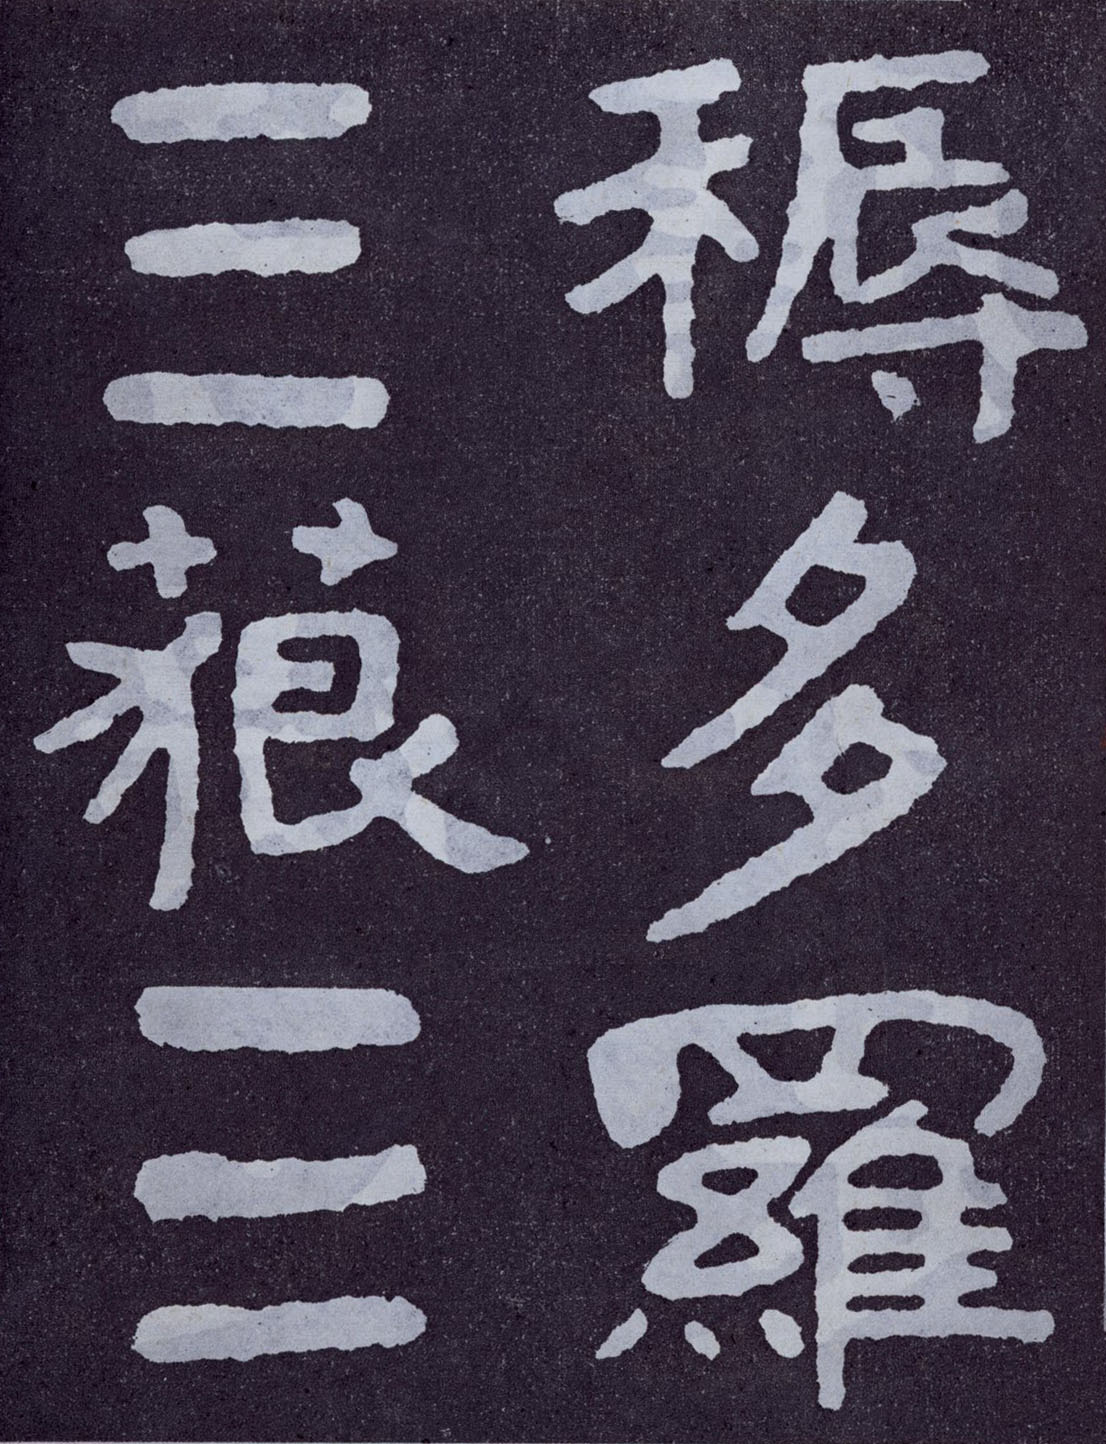 耨多羅
三藐三